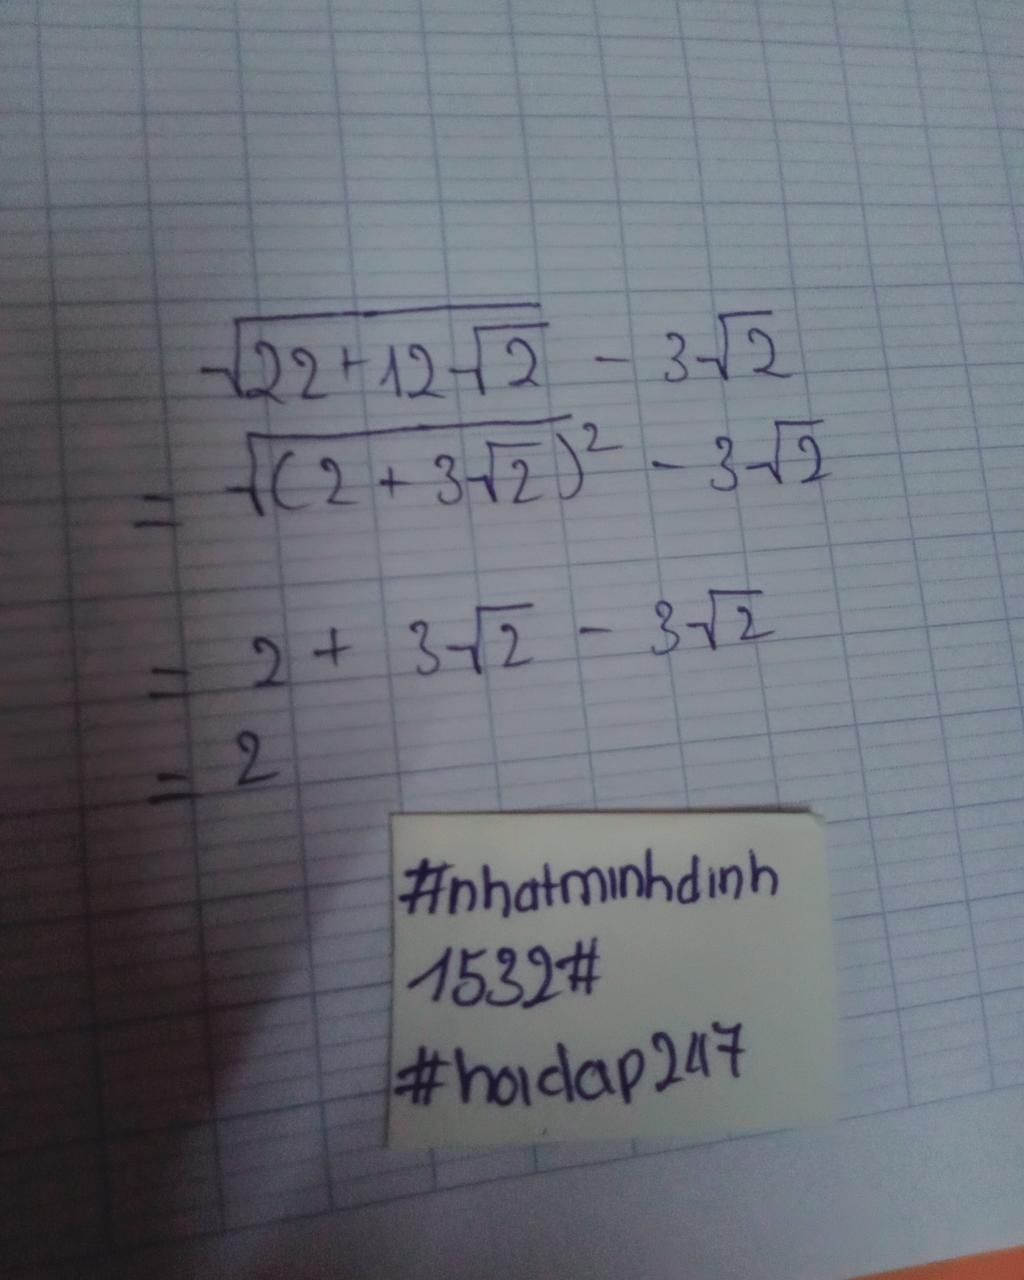 √(22+12√2) - 3√2
= √((2 + 3√2)²) - 3√2
= 2 + 3√2 - 3√2
= 2
#nhatminhdinh
1532#
#hoidap247